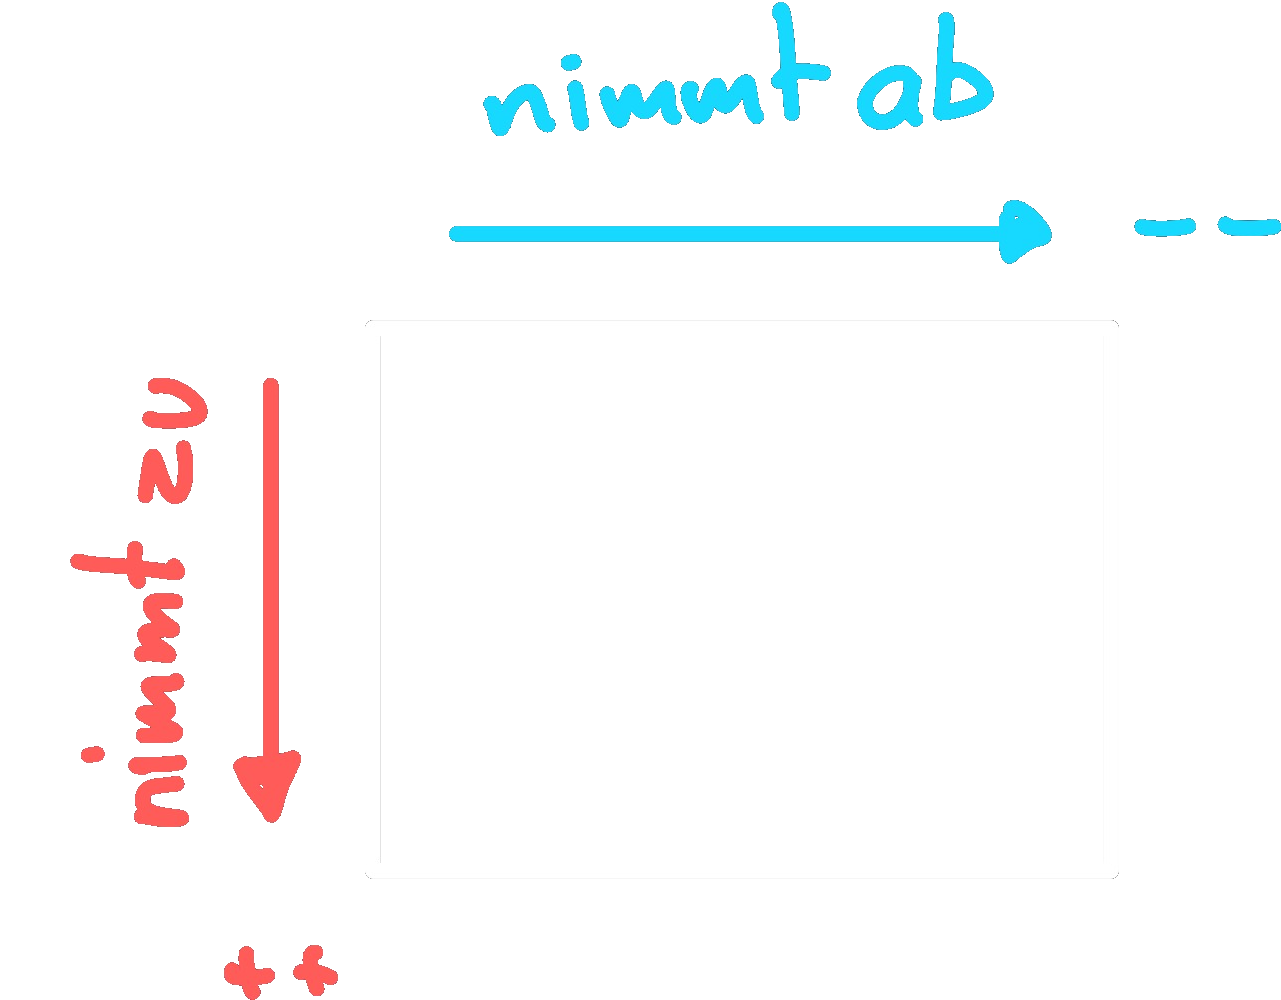 nimmt ab
--
nimmt zu
++